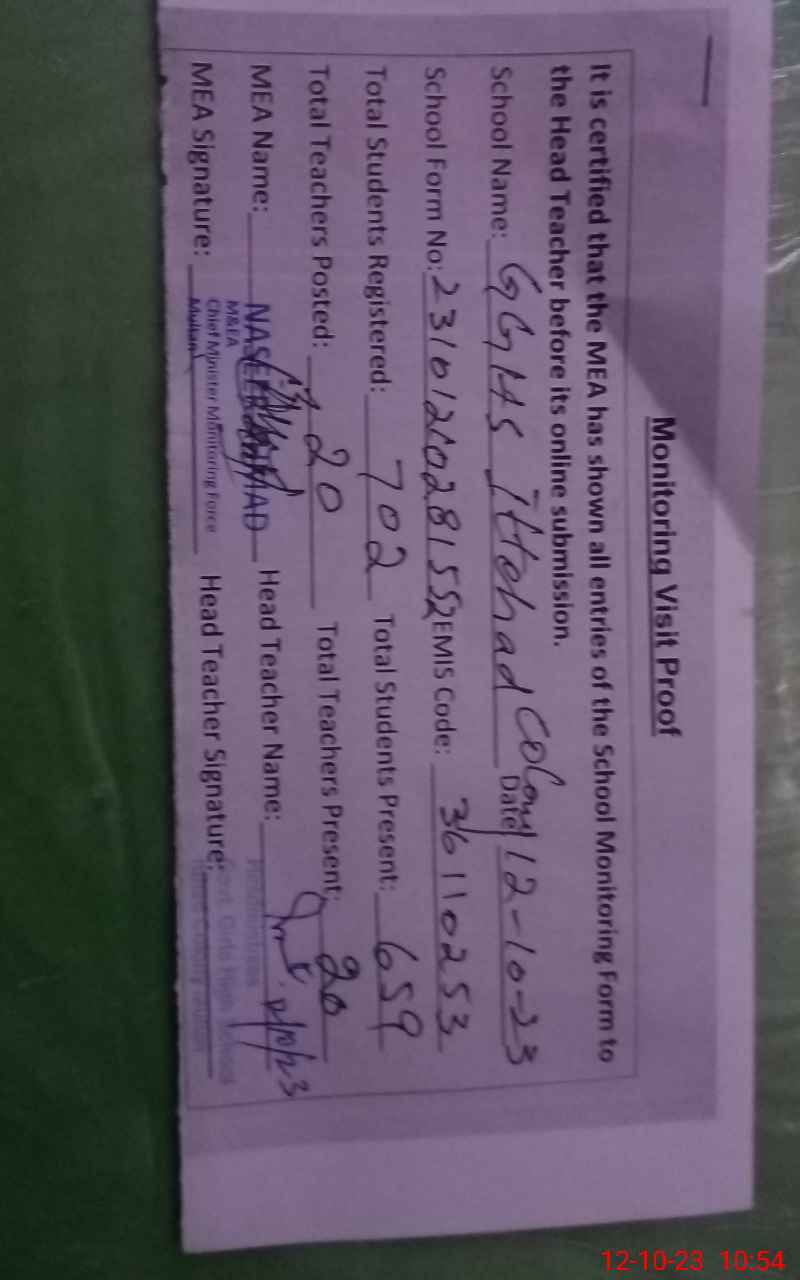 Monitoring Visit Proof
It is certified that the MEA has shown all entries of the School Monitoring Form to
the Head Teacher before its online submission.
School Name: GGHS Ittehad Colony Date 12-10-23
School Form No: EMIS Code: 36110253
Total Students Registered: 702 Total Students Present: 659
Total Teachers Posted: 20 Total Teachers Present: 20
MEA Name: Head Teacher Name:
M&EA
Chief Minister Monitoring Force
Multan
MEA Signature: Head Teacher Signature:
Govt. Girls High School
12-10-23 10:54